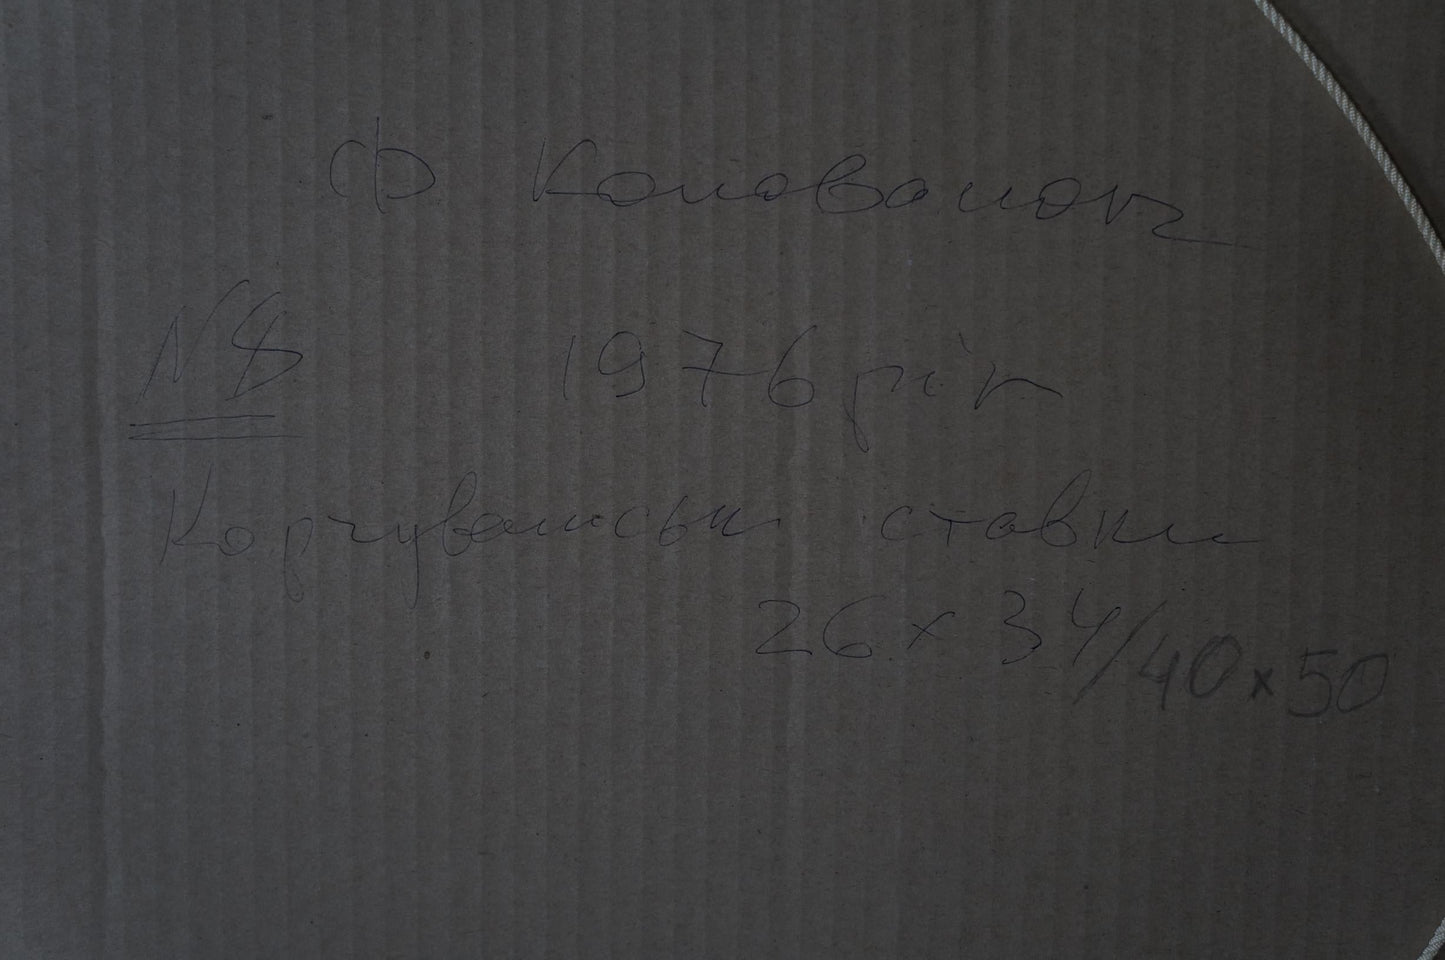 Ф Коновалюк
N 8
1976 рік
Корчуватські ставки
26 x 34/40 x 50